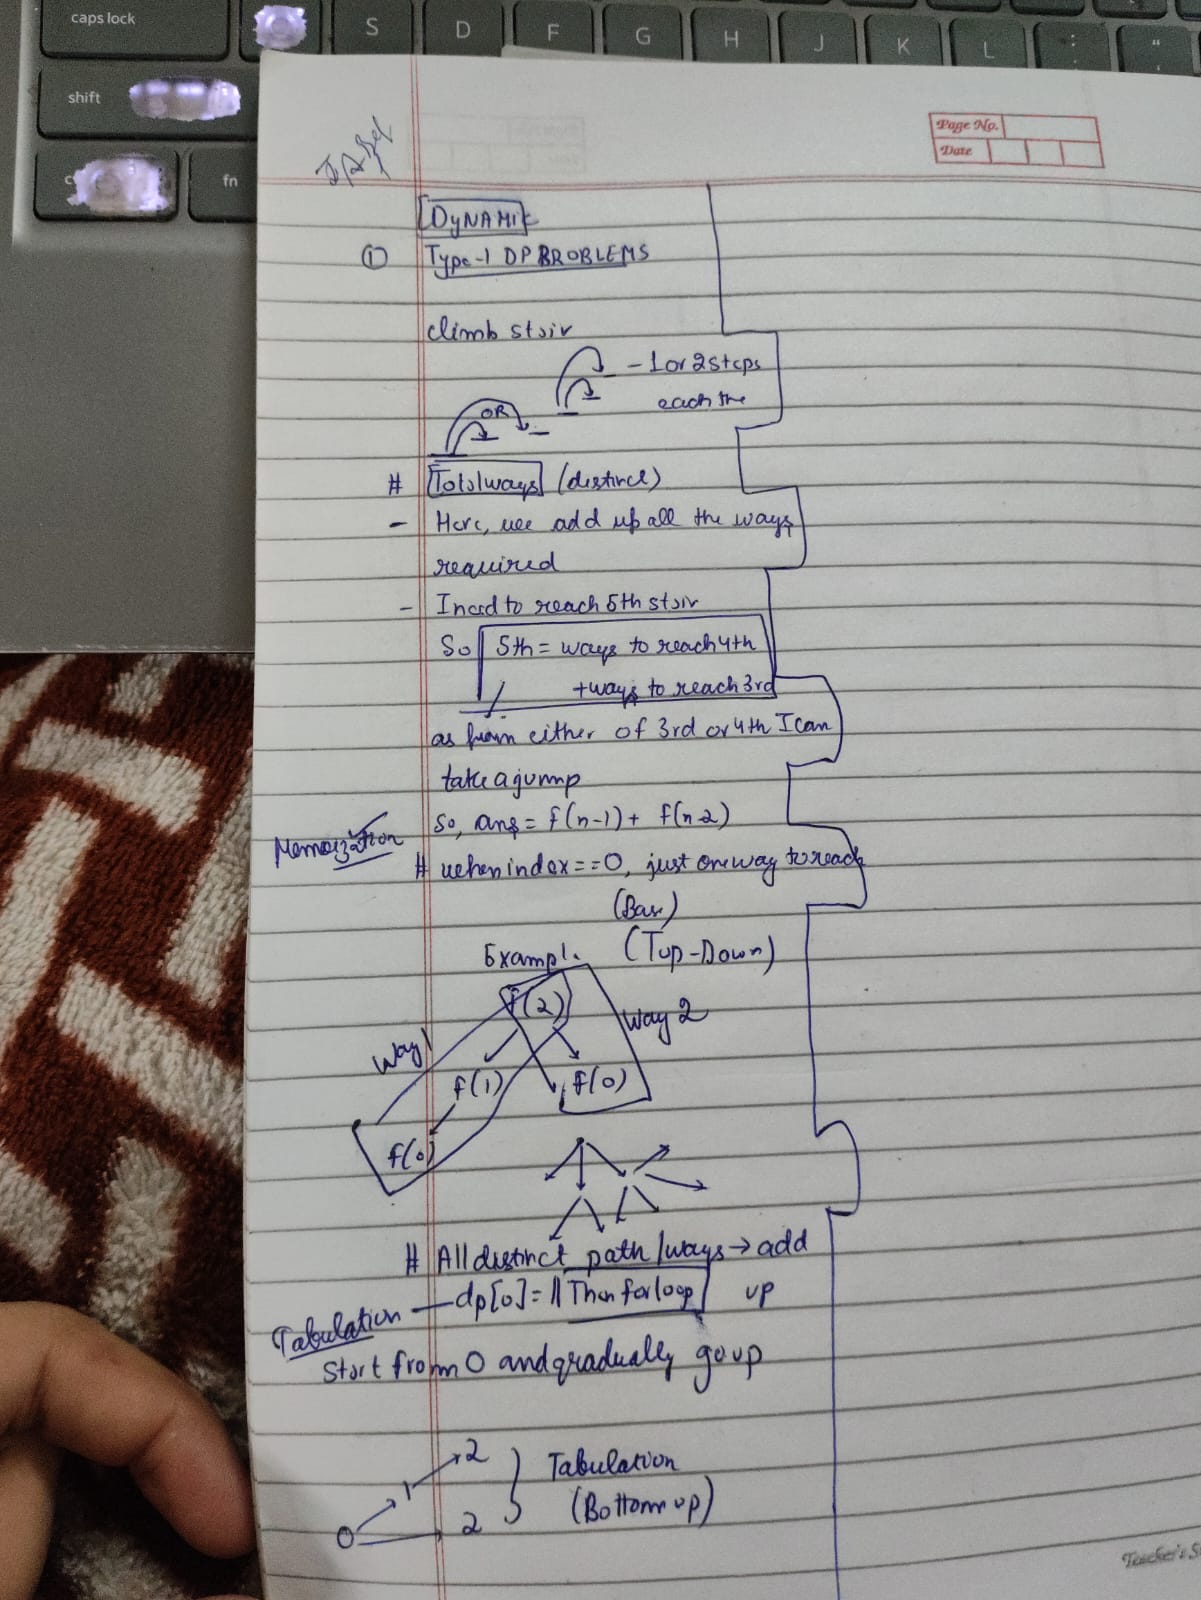 caps lock
S
D
F
G
H
J
K
L
:
;
"
shift
fn
Page No.
Date
DyNAMIC
① Type-1 DP BROBLEMS
climb stair
- 1 or 2 steps
each
OR
# Total ways (distinct)
- Here, we add up all the ways
required
- I need to reach 5th stair
So 5th = ways to reach 4th
+ ways to reach 3rd
as from either of 3rd or 4th I can
take a jump
So, ans = f(n-1) + f(n-2)
Memoization
# when index == 0, just one way to reach
(Base)
Example (Top-Down)
f(2)
Way 2
Way 1
f(1)
f(0)
f(0)
# All distinct path/ways → add
up
Tabulation - dp[0] = 1 Then for loop
Start from 0 and gradually go up
0 1 2
2
Tabulation
(Bottom up)